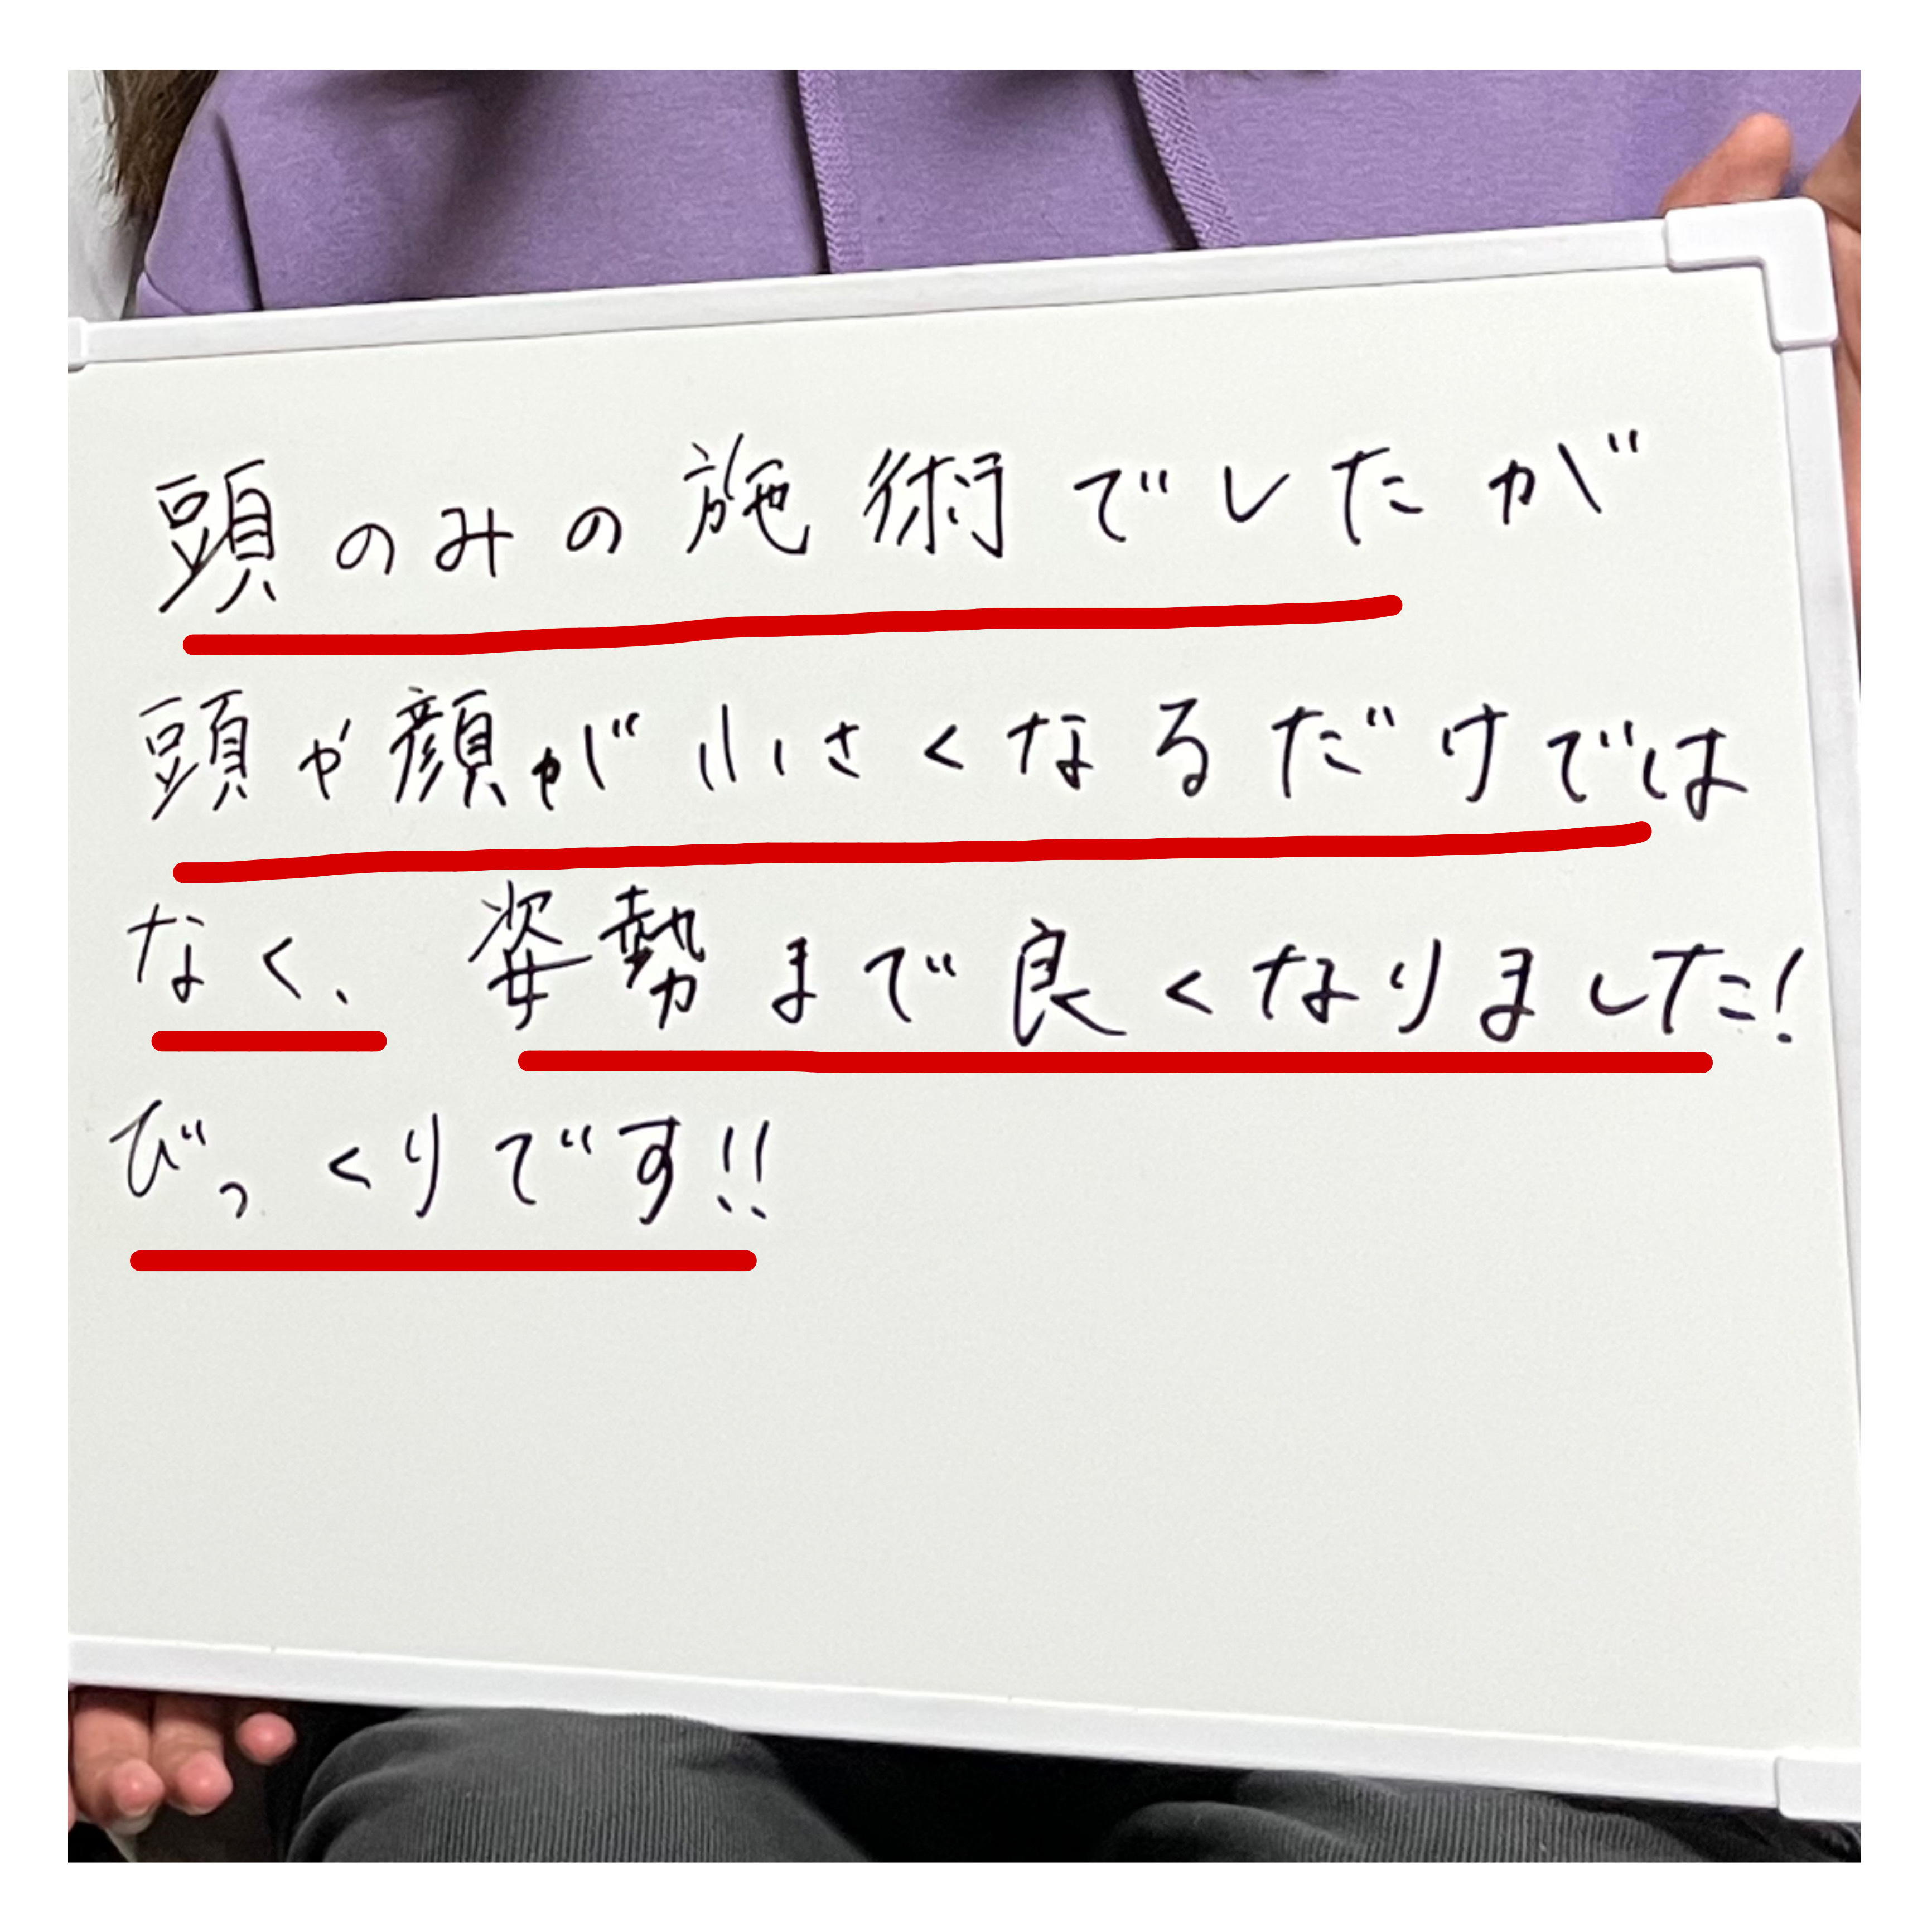 頭のみの施術でしたが
頭や顔が小さくなるだけでは
なく、姿勢まで良くなりました!
びっくりです!!